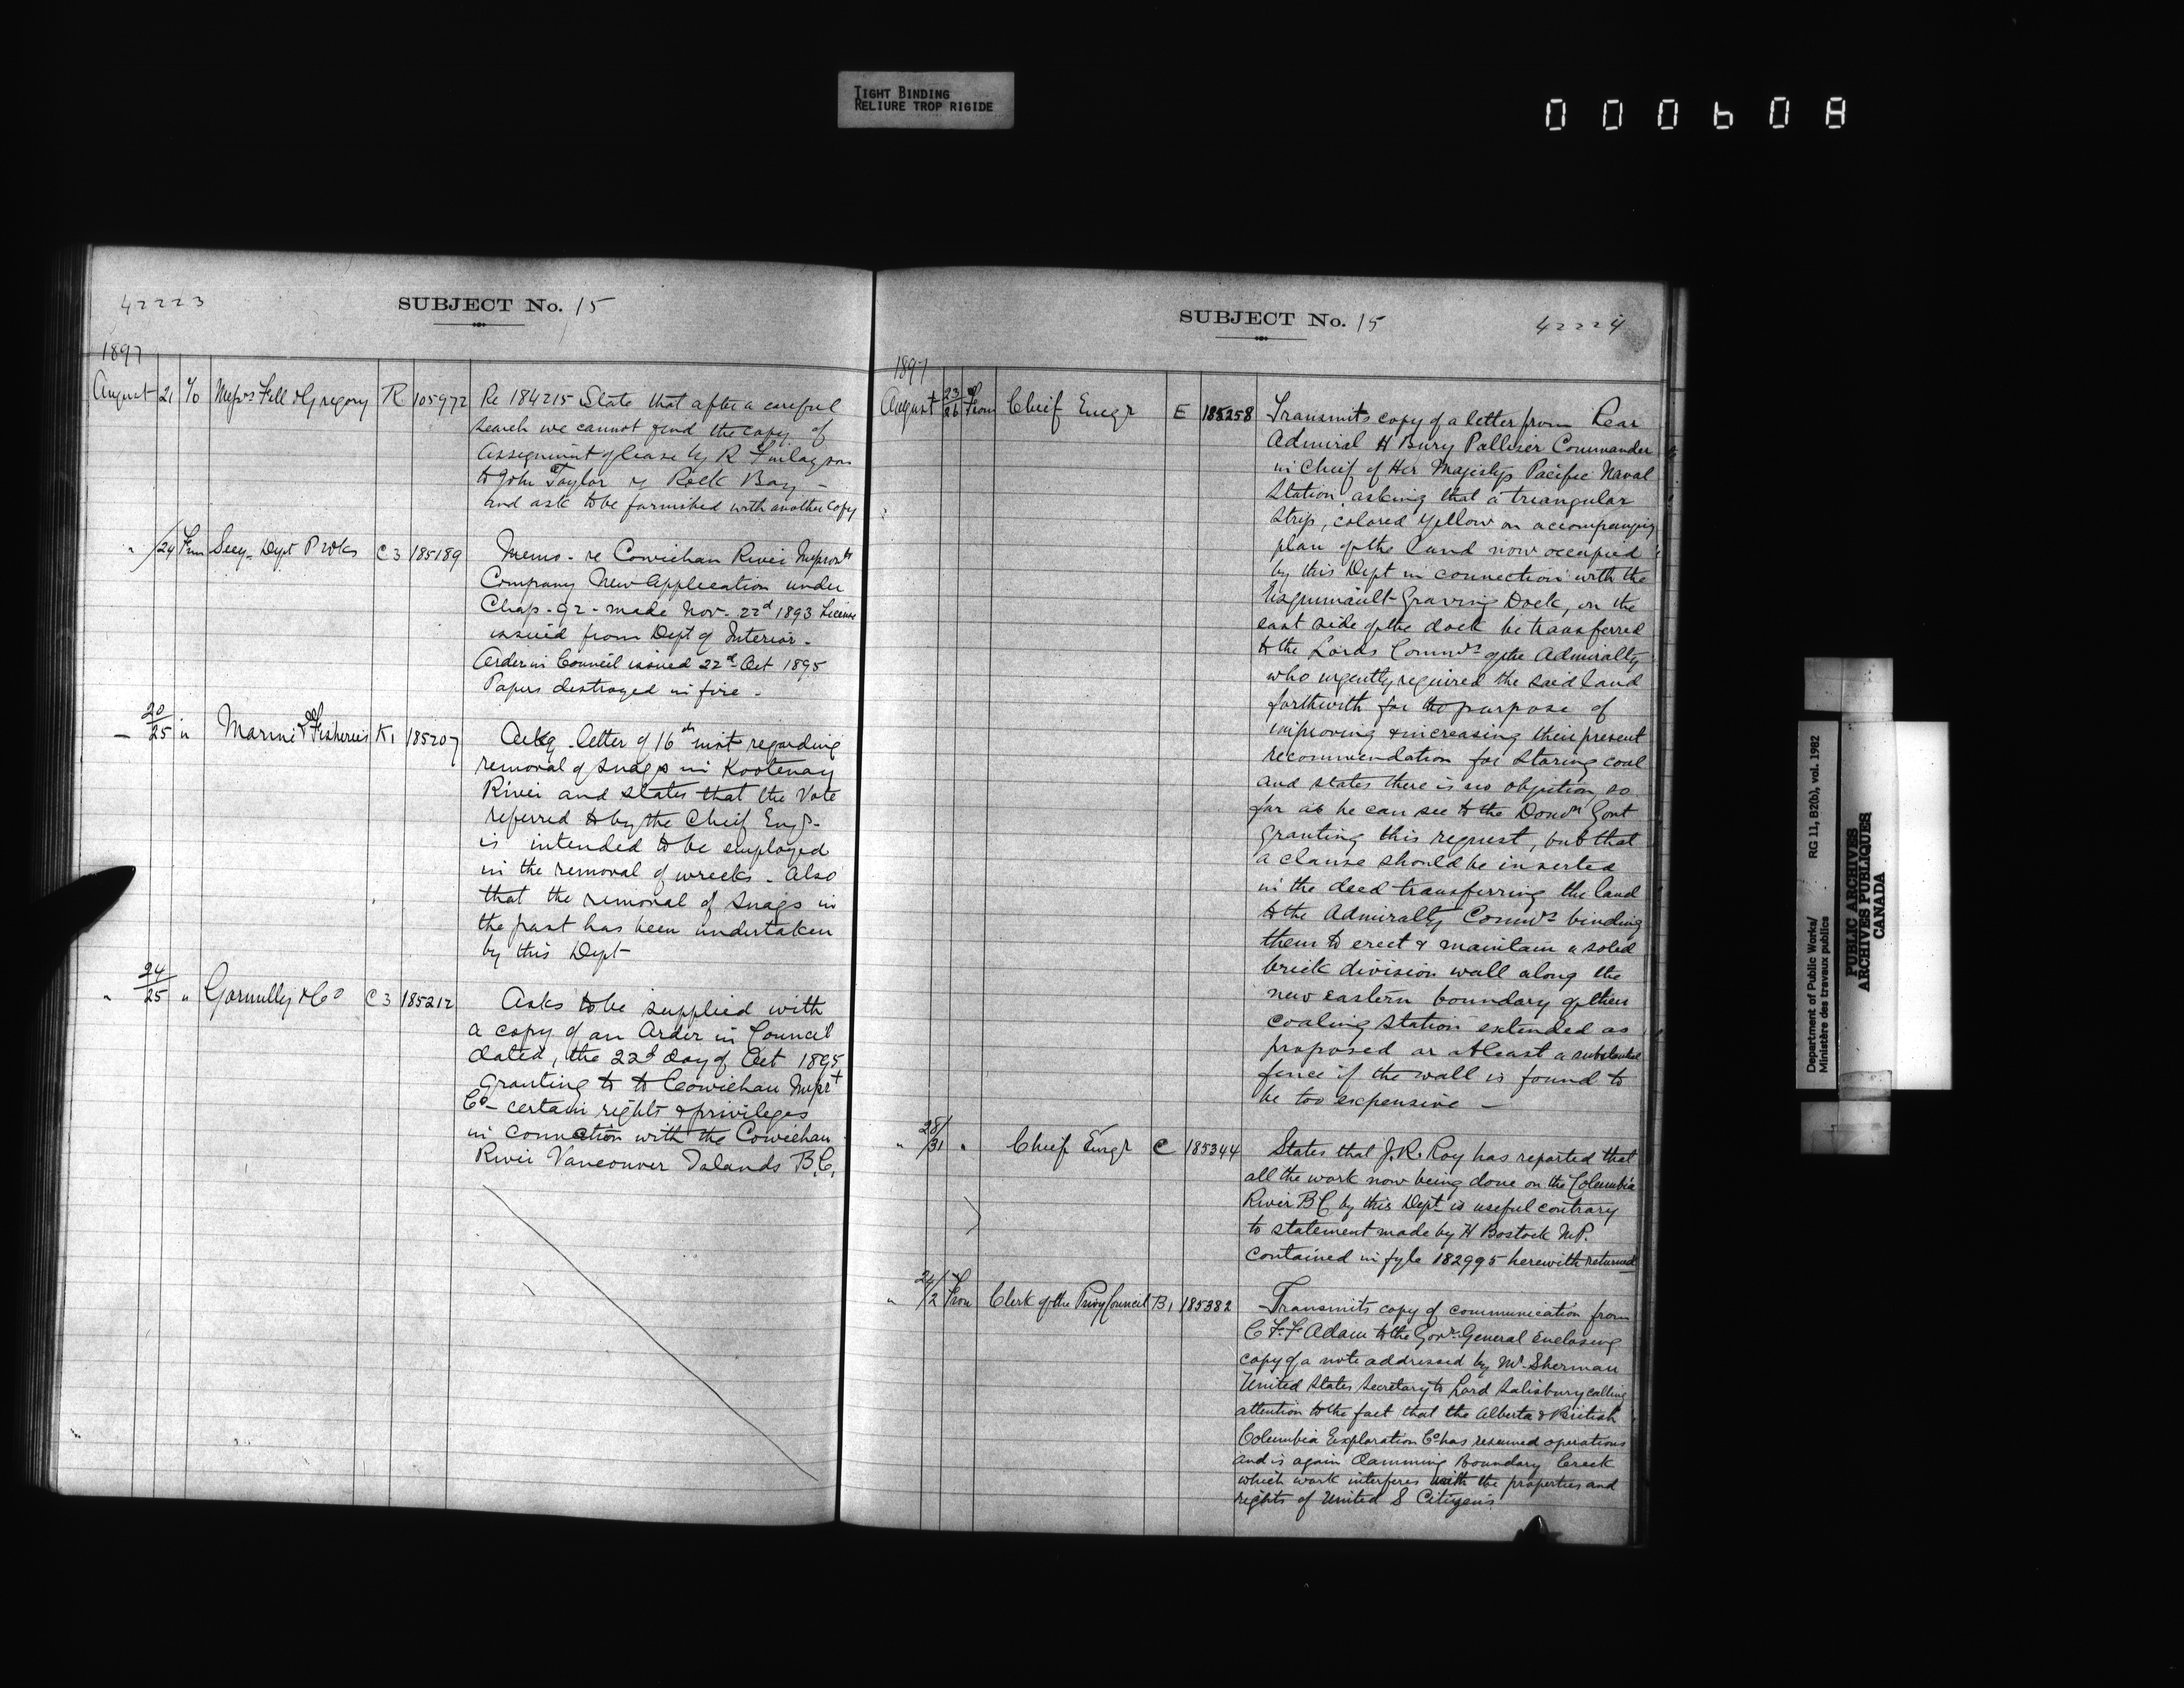 TIGHT BINDING
RELIURE TROP RIGIDE
000608
42223
SUBJECT No. 15
1897
August 21 To Messrs Fell & Gregory R 105972 Re 184215 State that after a careful
search we cannot find the copy of
assignment of lease by R Finlayson
to John Taylor of Rock Bay -
and ask to be furnished with another copy
" /24 From Secy Dept P Wks C3 185189 Memo - re Cowichan River Improvt
Company New Application under
Chap. 92 - made Nov. 22d 1893 License
issued from Dept of Interior -
Order in Council issued 22d Oct 1895
Papers destroyed in fire -
20/25 " Marine & Fisheries K1 185207 Ackg letter of 16th inst regarding
removal of snags in Kootenay
River and states that the Vote
referred to by the Chief Engr.
is intended to be employed
in the removal of wrecks - Also
that the removal of snags in
the past has been undertaken
by this Dept
" 24/25 " Gormully & Co C3 185212 Asks to be supplied with
a copy of an Order in Council
dated, the 22d day of Oct 1895
granting to to Cowichan Imprt
Co - certain rights & privileges
in connection with the Cowichan
River Vancouver Islands B.C.
SUBJECT No. 15
42224
1897
August 23/26 From Chief Engr E 185258 Transmits copy of a letter from Rear
Admiral H Bury Palliser Commander
in Chief of Her Majestys Pacific Naval
Station asking that a triangular
strip, colored yellow on accompanying
plan of the land now occupied
by this Dept in connection with the
Esquimault Graving Dock, on the
east side of the dock be transferred
to the Lords Commrs of the Admiralty
who urgently required the said land
forthwith for the purpose of
improving & increasing their present
recommendation for storing coal
and states there is no objection, so
far as he can see to the Domn Govt
granting this request, but that
a clause should be inserted
in the deed transferring the land
to the Admiralty Commrs binding
them to erect & maintain a solid
brick division wall along the
new eastern boundary of their
coaling station extended as
proposed or at least a substantial
fence if the wall is found to
be too expensive -
" 28/31 " Chief Engr C 185344 States that J.R. Roy has reported that
all the work now being done on the Columbia
River BC by this Dept is useful contrary
to statement made by H Bostock M.P.
contained in fyle 182995 herewith returned
" 24/2 From Clerk of the Privy Council B1 185382 Transmits copy of communication from
C F. F. Adam to the Govr. General Enclosing
copy of a note addressed by Mr Sherman
United States Secretary to Lord Salisbury calling
attention to the fact that the Alberta & British
Columbia Exploration Co has resumed operations
and is again damming Boundary Creek
which work interferes with the properties and
rights of United S Citizens.
Department of Public Works/
Ministère des travaux publics
RG 11, B2(b), vol. 1982
PUBLIC ARCHIVES
ARCHIVES PUBLIQUES
CANADA